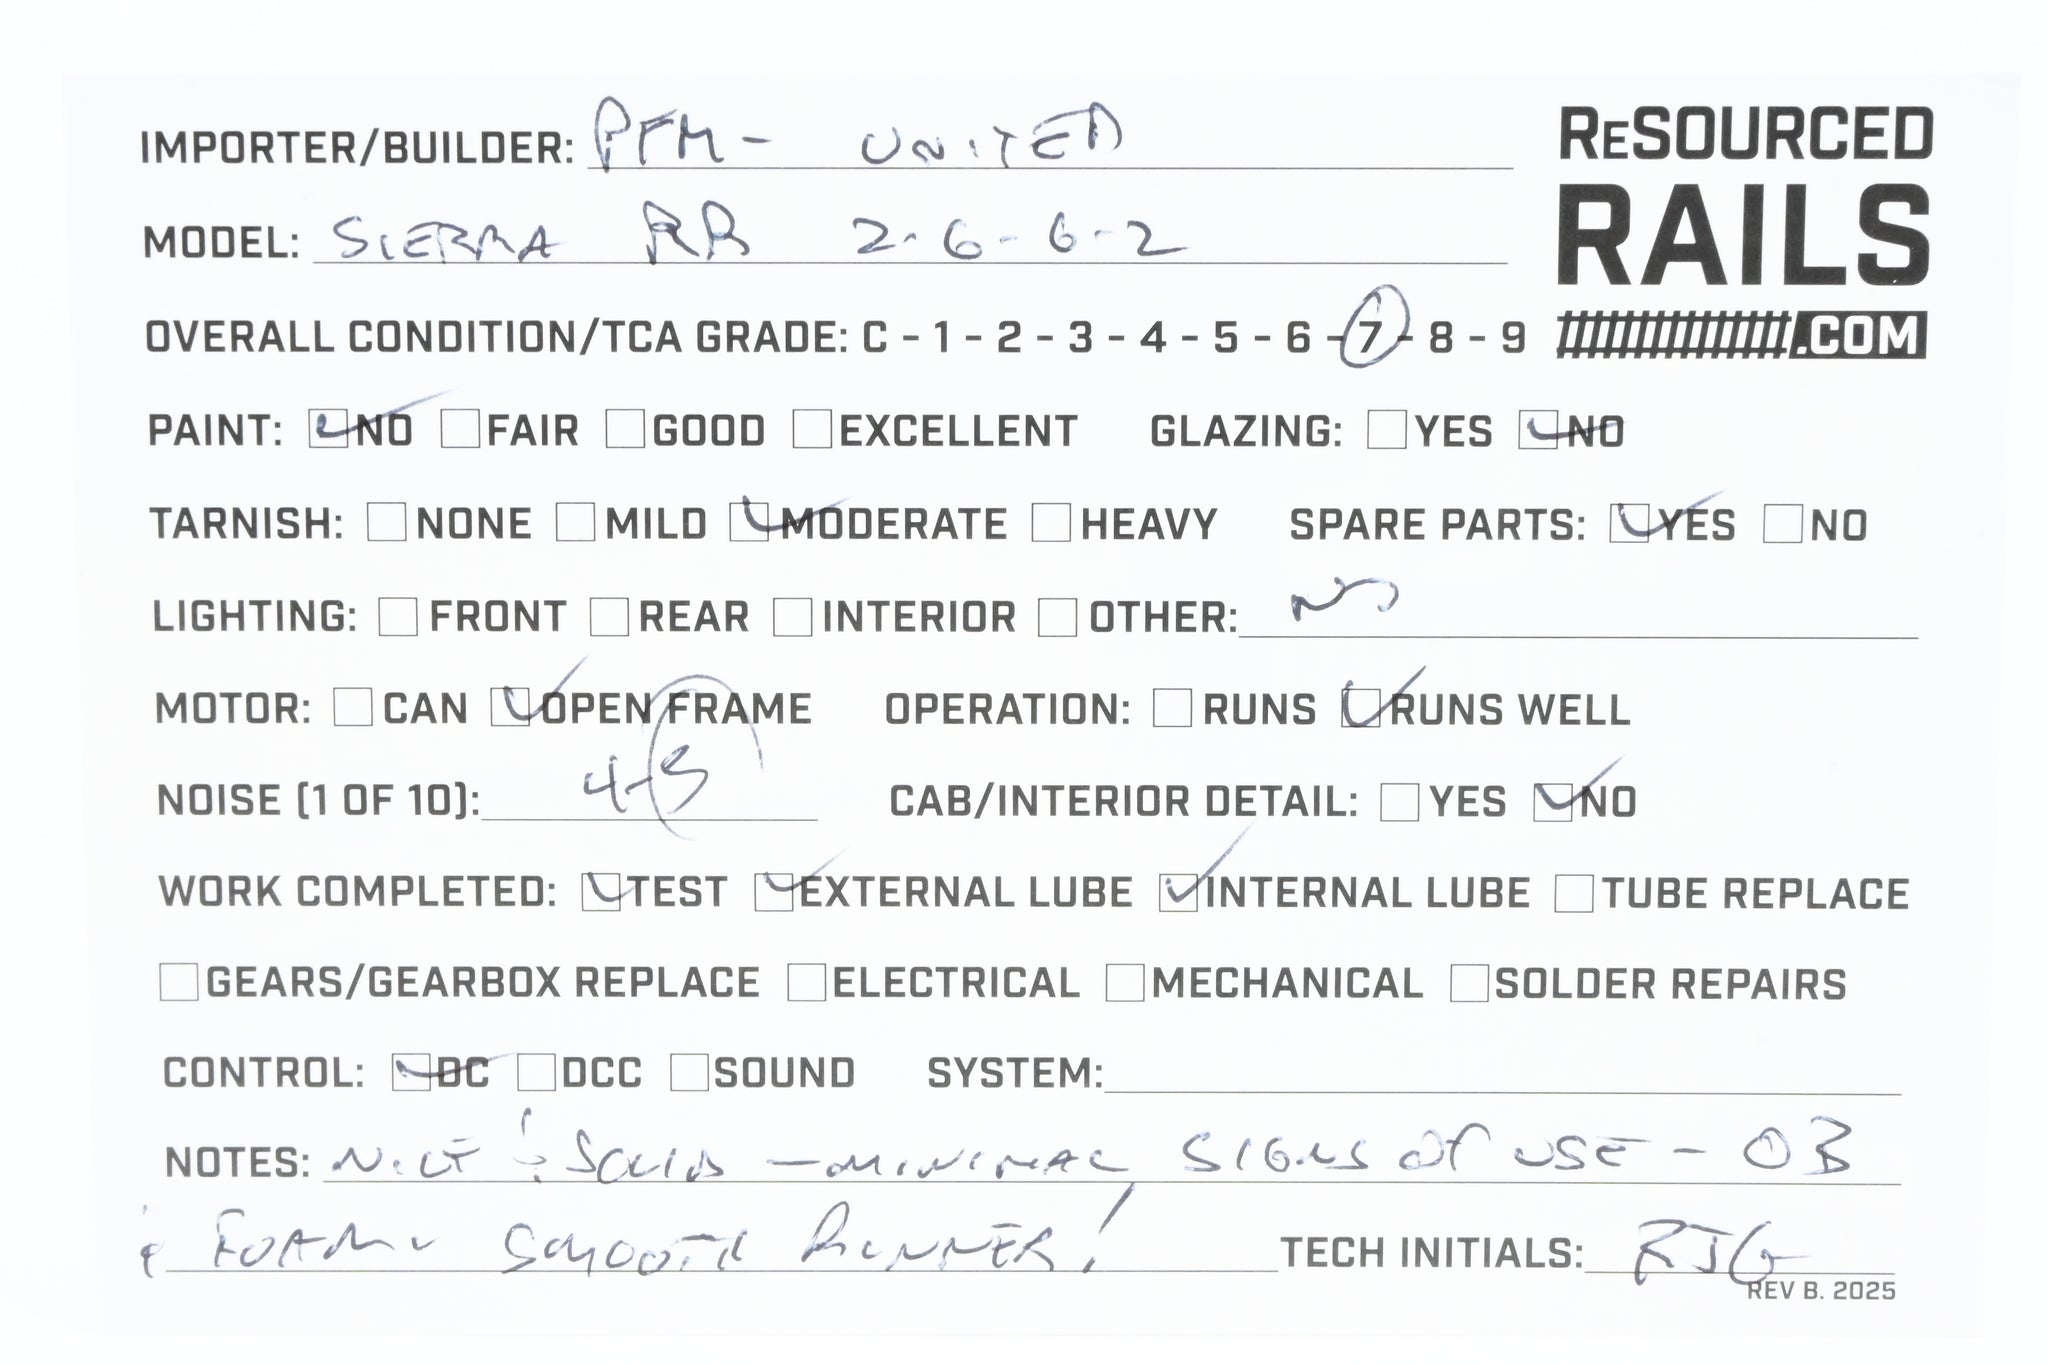 IMPORTER/BUILDER: PFM - UNITED
ReSOURCED
RAILS
.COM
MODEL: SIERRA RR 2-6-6-2
OVERALL CONDITION/TCA GRADE: C - 1 - 2 - 3 - 4 - 5 - 6 - 7 - 8 - 9
PAINT: NO FAIR GOOD EXCELLENT GLAZING: YES NO
TARNISH: NONE MILD MODERATE HEAVY SPARE PARTS: YES NO
LIGHTING: FRONT REAR INTERIOR OTHER: NO
MOTOR: CAN OPEN FRAME OPERATION: RUNS RUNS WELL
NOISE (1 OF 10): 4-5 CAB/INTERIOR DETAIL: YES NO
WORK COMPLETED: TEST EXTERNAL LUBE INTERNAL LUBE TUBE REPLACE
GEARS/GEARBOX REPLACE ELECTRICAL MECHANICAL SOLDER REPAIRS
CONTROL: DC DCC SOUND SYSTEM:
NOTES: NICE & SOLID - MINIMAL SIGNS OF USE - OB
& FOAM SMOOTH RUNNER! TECH INITIALS: RJG
REV B. 2025